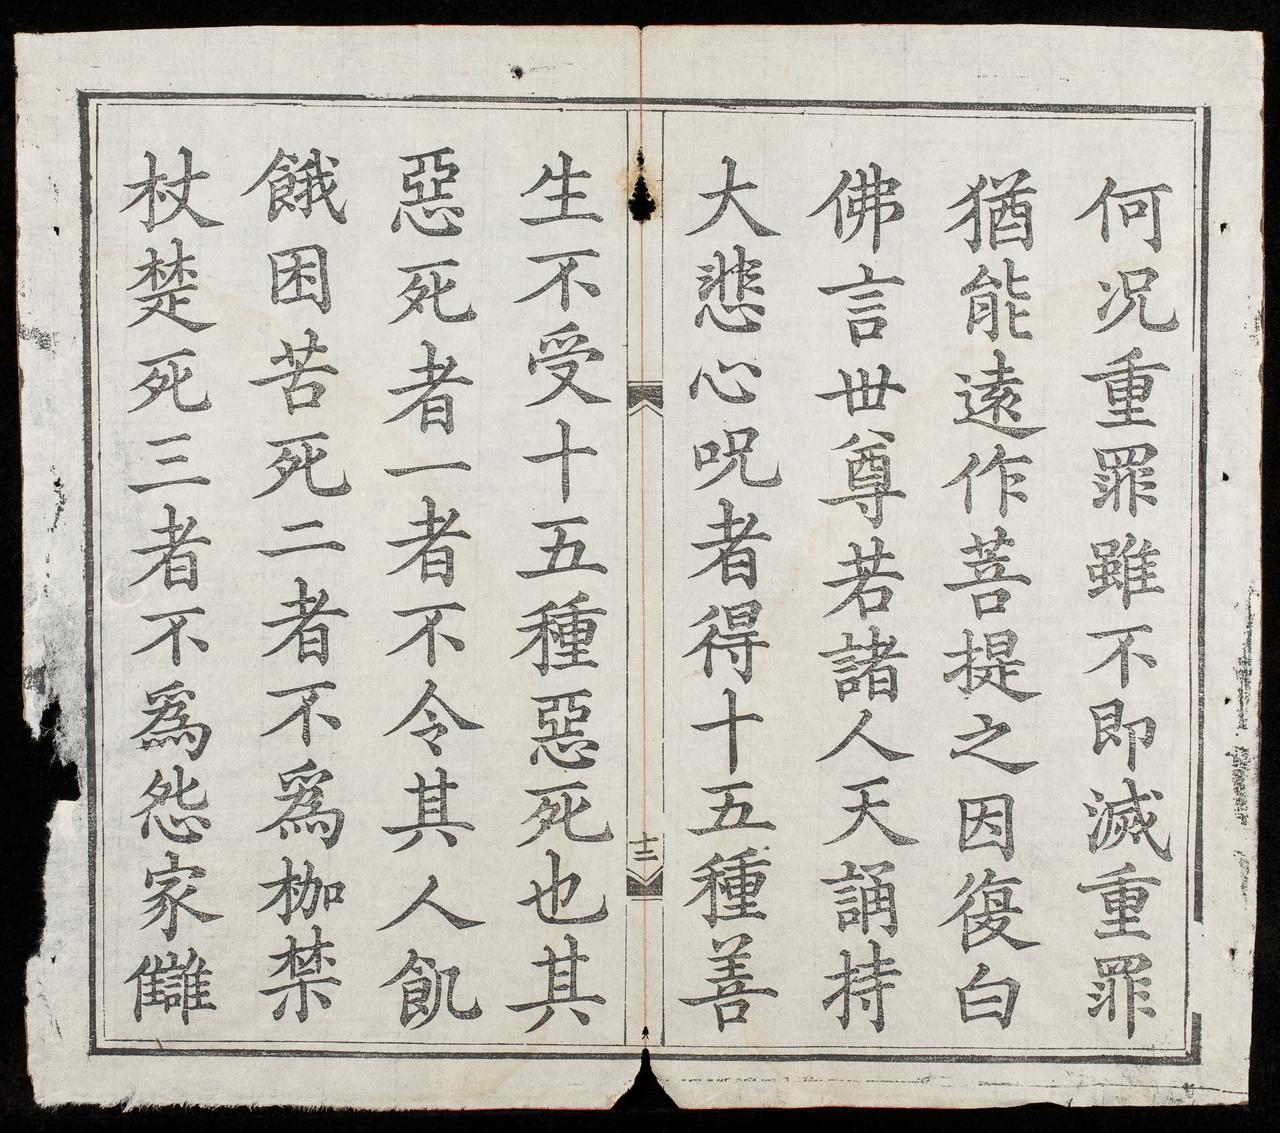 何况重罪雖不即滅重罪
猶能遠作菩提之因復白
佛言世尊若諸人天誦持
大悲心呪者得十五種善
十三
生不受十五種惡死也其
惡死者一者不令其人飢
餓困苦死二者不爲枷禁
杖楚死三者不爲怨家讎